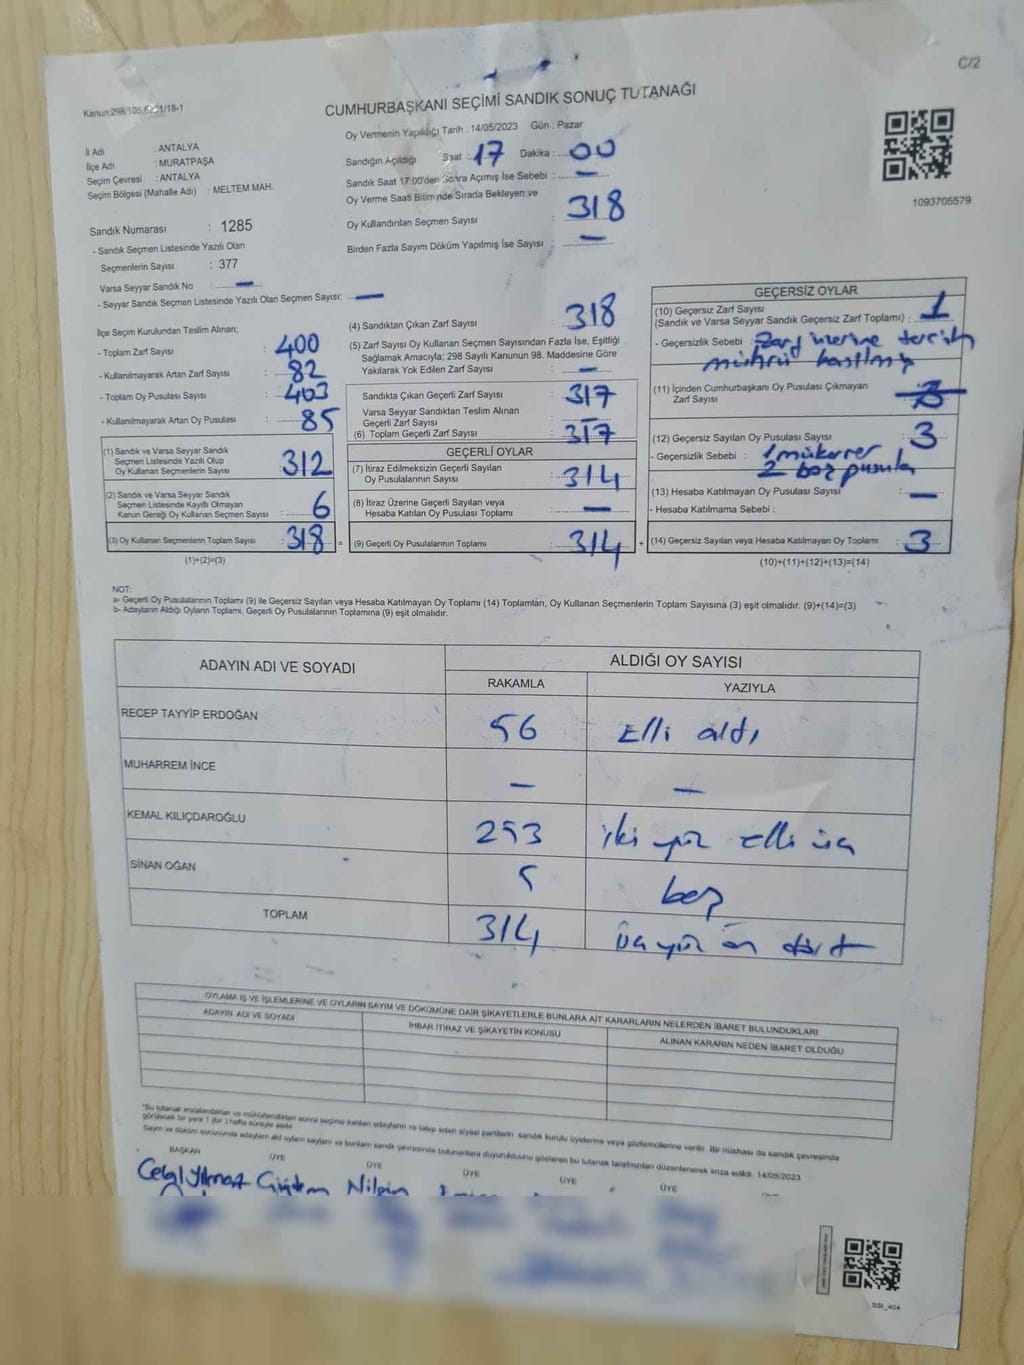 C/2
Kanun:298/105,6271/18-1
CUMHURBAŞKANI SEÇİMİ SANDIK SONUÇ TUTANAĞI
İl Adı : ANTALYA
İlçe Adı : MURATPAŞA
Seçim Çevresi : ANTALYA
Seçim Bölgesi (Mahalle Adı) : MELTEM MAH.
Oy Vermenin Yapıldığı Tarih : 14/05/2023 Gün : Pazar
Sandığın Açıldığı Saat : 17 Dakika : 00
Sandık Saat 17:00'den Sonra Açımış İse Sebebi : —
Oy Verme Saati Bitiminde Sırada Bekleyen ve
Oy Kullandırılan Seçmen Sayısı : 318
Birden Fazla Sayım Döküm Yapılmış İse Sayısı : —
1093705579
Sandık Numarası : 1285
- Sandık Seçmen Listesinde Yazılı Olan
Seçmenlerin Sayısı : 377
Varsa Seyyar Sandık No : —
- Seyyar Sandık Seçmen Listesinde Yazılı Olan Seçmen Sayısı: —
İlçe Seçim Kurulundan Teslim Alınan;
- Toplam Zarf Sayısı : 400
- Kullanılmayarak Artan Zarf Sayısı : 82
- Toplam Oy Pusulası Sayısı : 403
- Kullanılmayarak Artan Oy Pusulası : 85
(1) Sandık ve Varsa Seyyar Sandık
Seçmen Listesinde Yazılı Olup
Oy Kullanan Seçmenlerin Sayısı : 312
(2) Sandık ve Varsa Seyyar Sandık
Seçmen Listesinde Kayıtlı Olmayan
Kanun Gereği Oy Kullanan Seçmen Sayısı : 6
(3) Oy Kullanan Seçmenlerin Toplam Sayısı : 318 =
(1)+(2)=(3)
(4) Sandıktan Çıkan Zarf Sayısı : 318
(5) Zarf Sayısı Oy Kullanan Seçmen Sayısından Fazla İse, Eşitliği
Sağlamak Amacıyla; 298 Sayılı Kanunun 98. Maddesine Göre
Yakılarak Yok Edilen Zarf Sayısı : —
Sandıkta Çıkan Geçerli Zarf Sayısı : 317
Varsa Seyyar Sandıktan Teslim Alınan
Geçerli Zarf Sayısı : —
(6) Toplam Geçerli Zarf Sayısı : 317
GEÇERLİ OYLAR
(7) İtiraz Edilmeksizin Geçerli Sayılan
Oy Pusulalarının Sayısı : 314
(8) İtiraz Üzerine Geçerli Sayılan veya
Hesaba Katılan Oy Pusulası Toplamı : —
(9) Geçerli Oy Pusulalarının Toplamı : 314 +
GEÇERSİZ OYLAR
(10) Geçersiz Zarf Sayısı
(Sandık ve Varsa Seyyar Sandık Geçersiz Zarf Toplamı) : 1
- Geçersizlik Sebebi : Zarf üzerine tercih
mührü basılmış
(11) İçinden Cumhurbaşkanı Oy Pusulası Çıkmayan
Zarf Sayısı
(12) Geçersiz Sayılan Oy Pusulası Sayısı : 3
- Geçersizlik Sebebi : 1 mükerrer
2 boş pusula
(13) Hesaba Katılmayan Oy Pusulası Sayısı : —
- Hesaba Katılmama Sebebi :
(14) Geçersiz Sayılan veya Hesaba Katılmayan Oy Toplamı : 3
(10)+(11)+(12)+(13)=(14)
NOT:
a- Geçerli Oy Pusulalarının Toplamı (9) ile Geçersiz Sayılan veya Hesaba Katılmayan Oy Toplamı (14) Toplamları, Oy Kullanan Seçmenlerin Toplam Sayısına (3) eşit olmalıdır. (9)+(14)=(3)
b- Adayların Aldığı Oyların Toplamı, Geçerli Oy Pusulalarının Toplamına (9) eşit olmalıdır.
ADAYIN ADI VE SOYADI ALDIĞI OY SAYISI
RAKAMLA YAZIYLA
RECEP TAYYİP ERDOĞAN 56 Elli altı
MUHARREM İNCE — —
KEMAL KILIÇDAROĞLU 253 iki yüz elli üç
SİNAN OĞAN 5 beş
TOPLAM 314 üç yüz on dört
OYLAMA İŞ VE İŞLEMLERİNE VE OYLARIN SAYIM VE DÖKÜMÜNE DAİR ŞİKAYETLERLE BUNLARA AİT KARARLARIN NELERDEN İBARET BULUNDUKLARI
ADAYIN ADI VE SOYADI İHBAR İTİRAZ VE ŞİKAYETİN KONUSU ALINAN KARARIN NEDEN İBARET OLDUĞU
*Bu tutanak imzalandıktan ve mühürlendikten sonra seçime katılan adayların ve talep eden siyasi partilerin sandık kurulu üyelerine veya gözlemcilerine verilir. Bir nüshası da sandık çevresinde
görülecek bir yere 1 (bir) hafta süreyle asılır.
Sayım ve döküm sonucunda adayların aldığı oyların sayısını ve bunların sandık çevresinde bulunanlara duyurulduğunu gösteren bu tutanak tarafımızdan düzenlenerek imza edildi. 14/05/2023
BAŞKAN ÜYE ÜYE ÜYE ÜYE ÜYE
Celal Yılmaz Çiğdem Nilgün
SSI_404